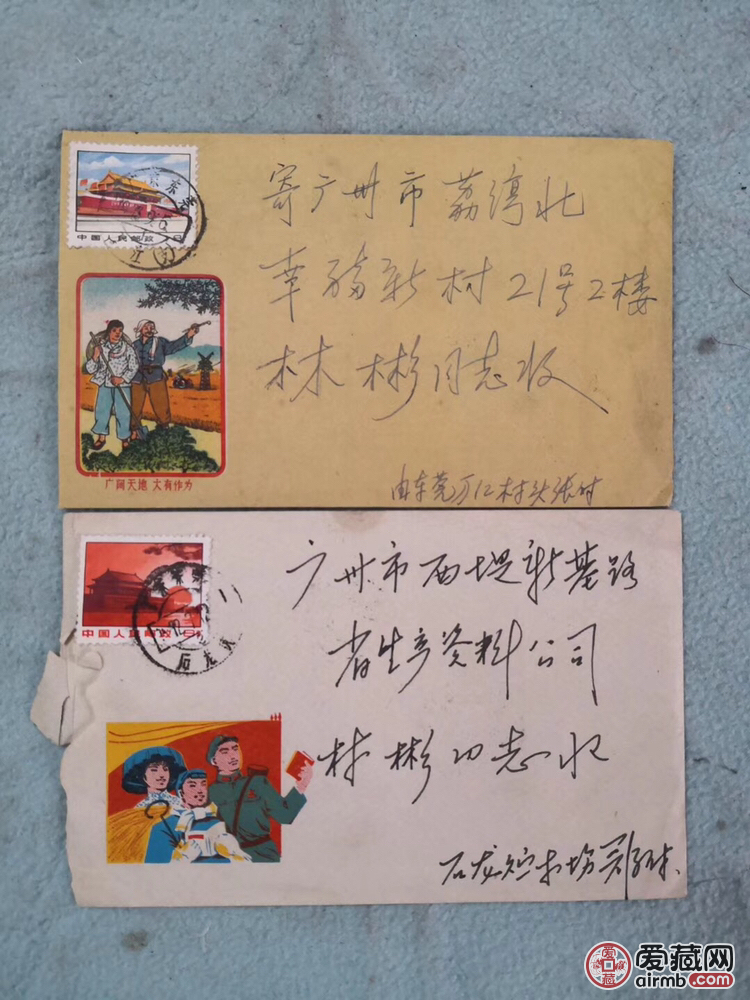 中国人民邮政
寄广州市荔湾北
幸福新村21号2楼
林彬同志收
广阔天地 大有作为
由东莞万江村头张付
中国人民邮政
石龙
广州市西堤新基路
省生产资料公司
林彬同志收
石龙
爱藏网
airmb.com